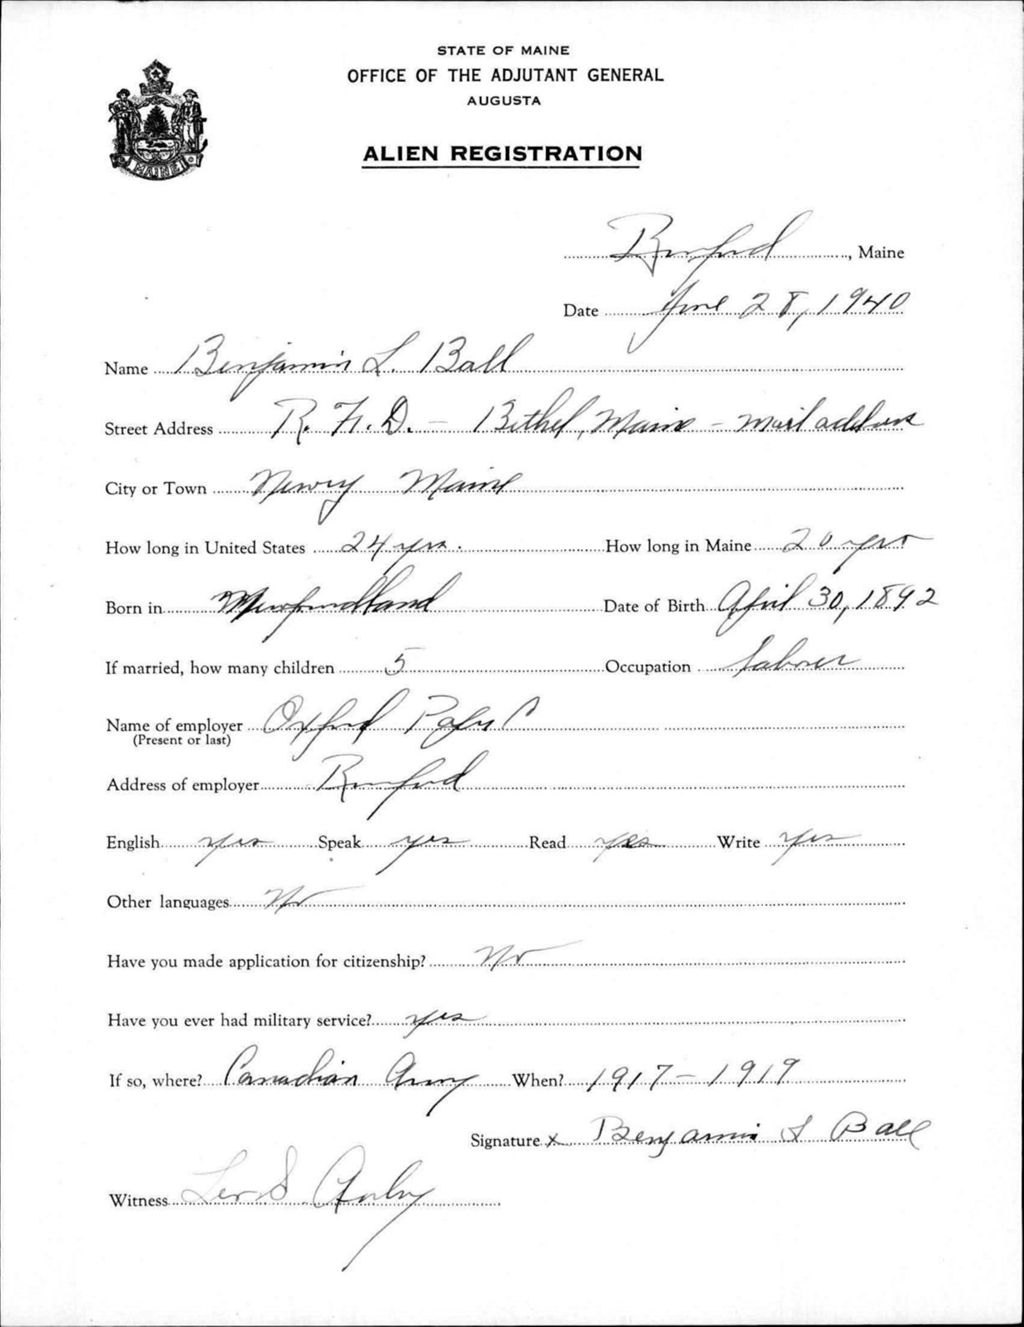 STATE OF MAINE
OFFICE OF THE ADJUTANT GENERAL
AUGUSTA
ALIEN REGISTRATION
MAINE
Rumford, Maine
Date June 28, 1940
Name Benjamin L. Ball
Street Address R. F. D. - Bethel, Maine - mail address
City or Town Newry Maine
How long in United States 24 yrs. How long in Maine 20 yrs
Born in Newfoundland Date of Birth April 30, 1892
If married, how many children 5 Occupation laborer
Name of employer Oxford Paper C
(Present or last)
Address of employer Rumford
English yes Speak yes Read yes Write yes
Other languages No
Have you made application for citizenship? No
Have you ever had military service? yes
If so, where? Canadian Army When? 1917-1919
Signature x Benjamin L Ball
Witness S.